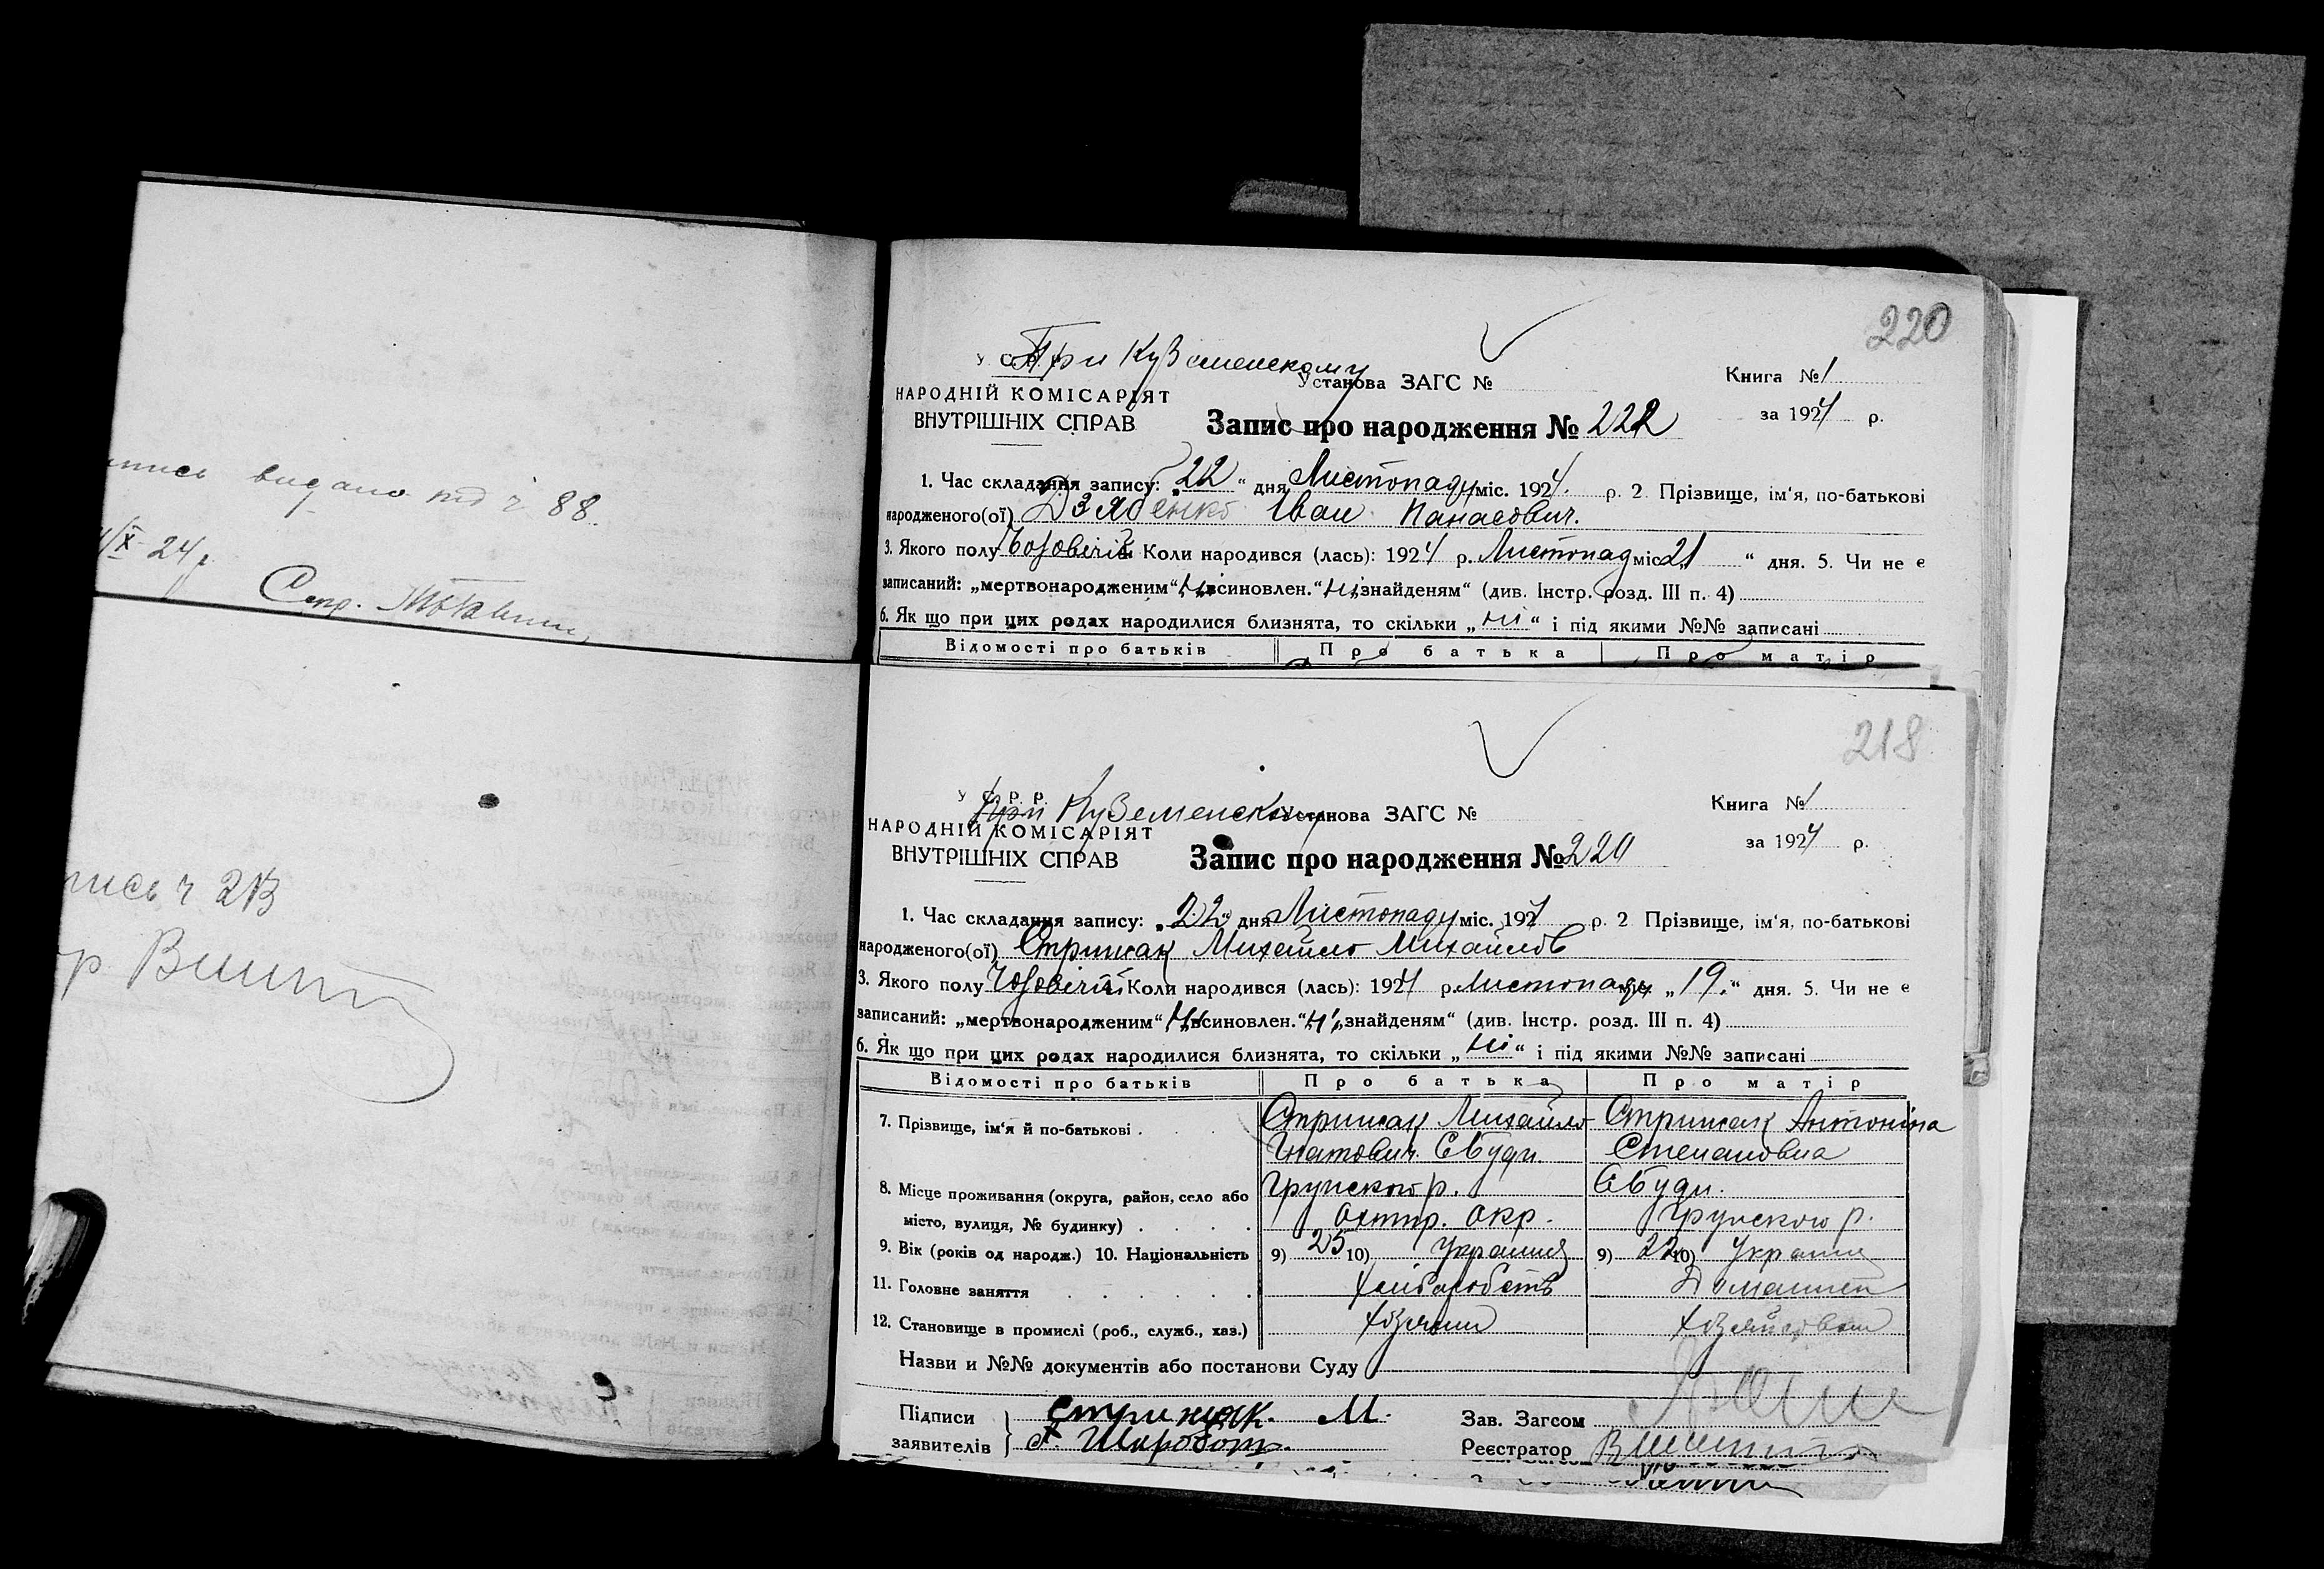 видано під ч 88.
/X 24 р.
ч 213
220
У С Р Р
При Куземенскому
Установа ЗАГС №
Книга № 1
НАРОДНІЙ КОМІСАРІЯТ
ВНУТРІШНІХ СПРАВ
Запис про народження № 222
за 1924 р.
1. Час складання запису: „22“ дня Листопаду міс. 1924. р. 2 Прізвище, ім‘я, по-батькові
народженого(ої) Дзябенко Іван Панасович.
3. Якого полу Чоловічій Коли народився (лась): 1924 р. Листопад міс. „21“ дня. 5. Чи не є
записаний: „мертвонародженим“ Ні „всиновлен.“ Ні „знайденям“ (див. Інстр. розд. III п. 4)
6. Як що при цих родах народилися близнята, то скільки „Ні“ і під якими №№ записані
Відомості про батьків Про батька Про матір
218
У С. Р. Р.
При Куземенском
Установа ЗАГС №
Книга № 1
НАРОДНІЙ КОМІСАРІЯТ
ВНУТРІШНІХ СПРАВ
Запис про народження № 220
за 1924 р.
1. Час складання запису: „22“ дня Листопаду міс. 1924 р. 2 Прізвище, ім‘я, по-батькові
народженого(ої) Стрижак Михайло Михайлов
3. Якого полу Чоловічій Коли народився (лась): 1924 р. Листопаду „19.“ дня. 5. Чи не є
записаний: „мертвонародженим“ Ні „всиновлен.“ Ні „знайденям“ (див. Інстр. розд. III п. 4)
6. Як що при цих родах народилися близнята, то скільки „Ні“ і під якими №№ записані
Відомості про батьків Про батька Про матір
7. Прізвище, ім‘я й по-батькові . Стрижак Михайло Стрижак Антоніна
Гнатович Степановна
8. Місце проживання (округа, район, село або Грунського р. Грунського р.
місто, вулиця, № будинку) . . . . Охтир. Окр.
9. Вік (років од народж.) 10. Національність 9) 25 10) Україниц 9) 22 10) Україниц
11. Головне заняття . . . . . . Хліборобств Домашнем
12. Становище в промислі (роб., служб., хаз.) Хозяїн Хозяйством
Назви и №№ документів або постанови Суду
Підписи
заявителів } Стрижак. М.
А. Шкробот.
Зав. Загсом
Реєстратор